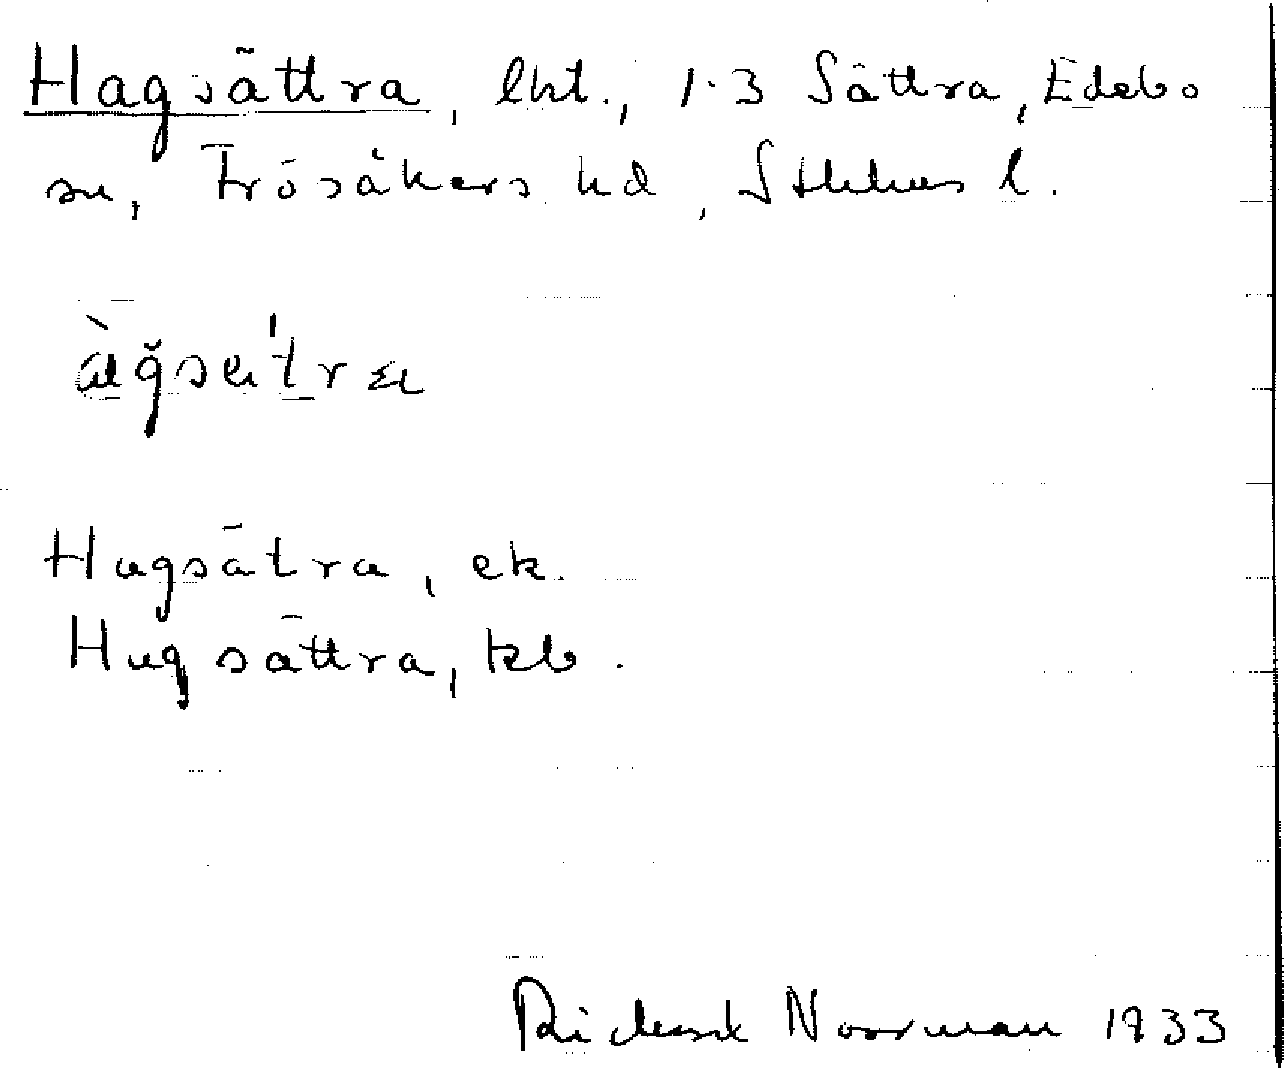 Hagsättra, lht., 1-3 Sättra, Edebo
sn, Frösåkers hd, Sthlms l.
Hagsätra, ek.
Hagsättra, kb.
Rickard Norrman 1933